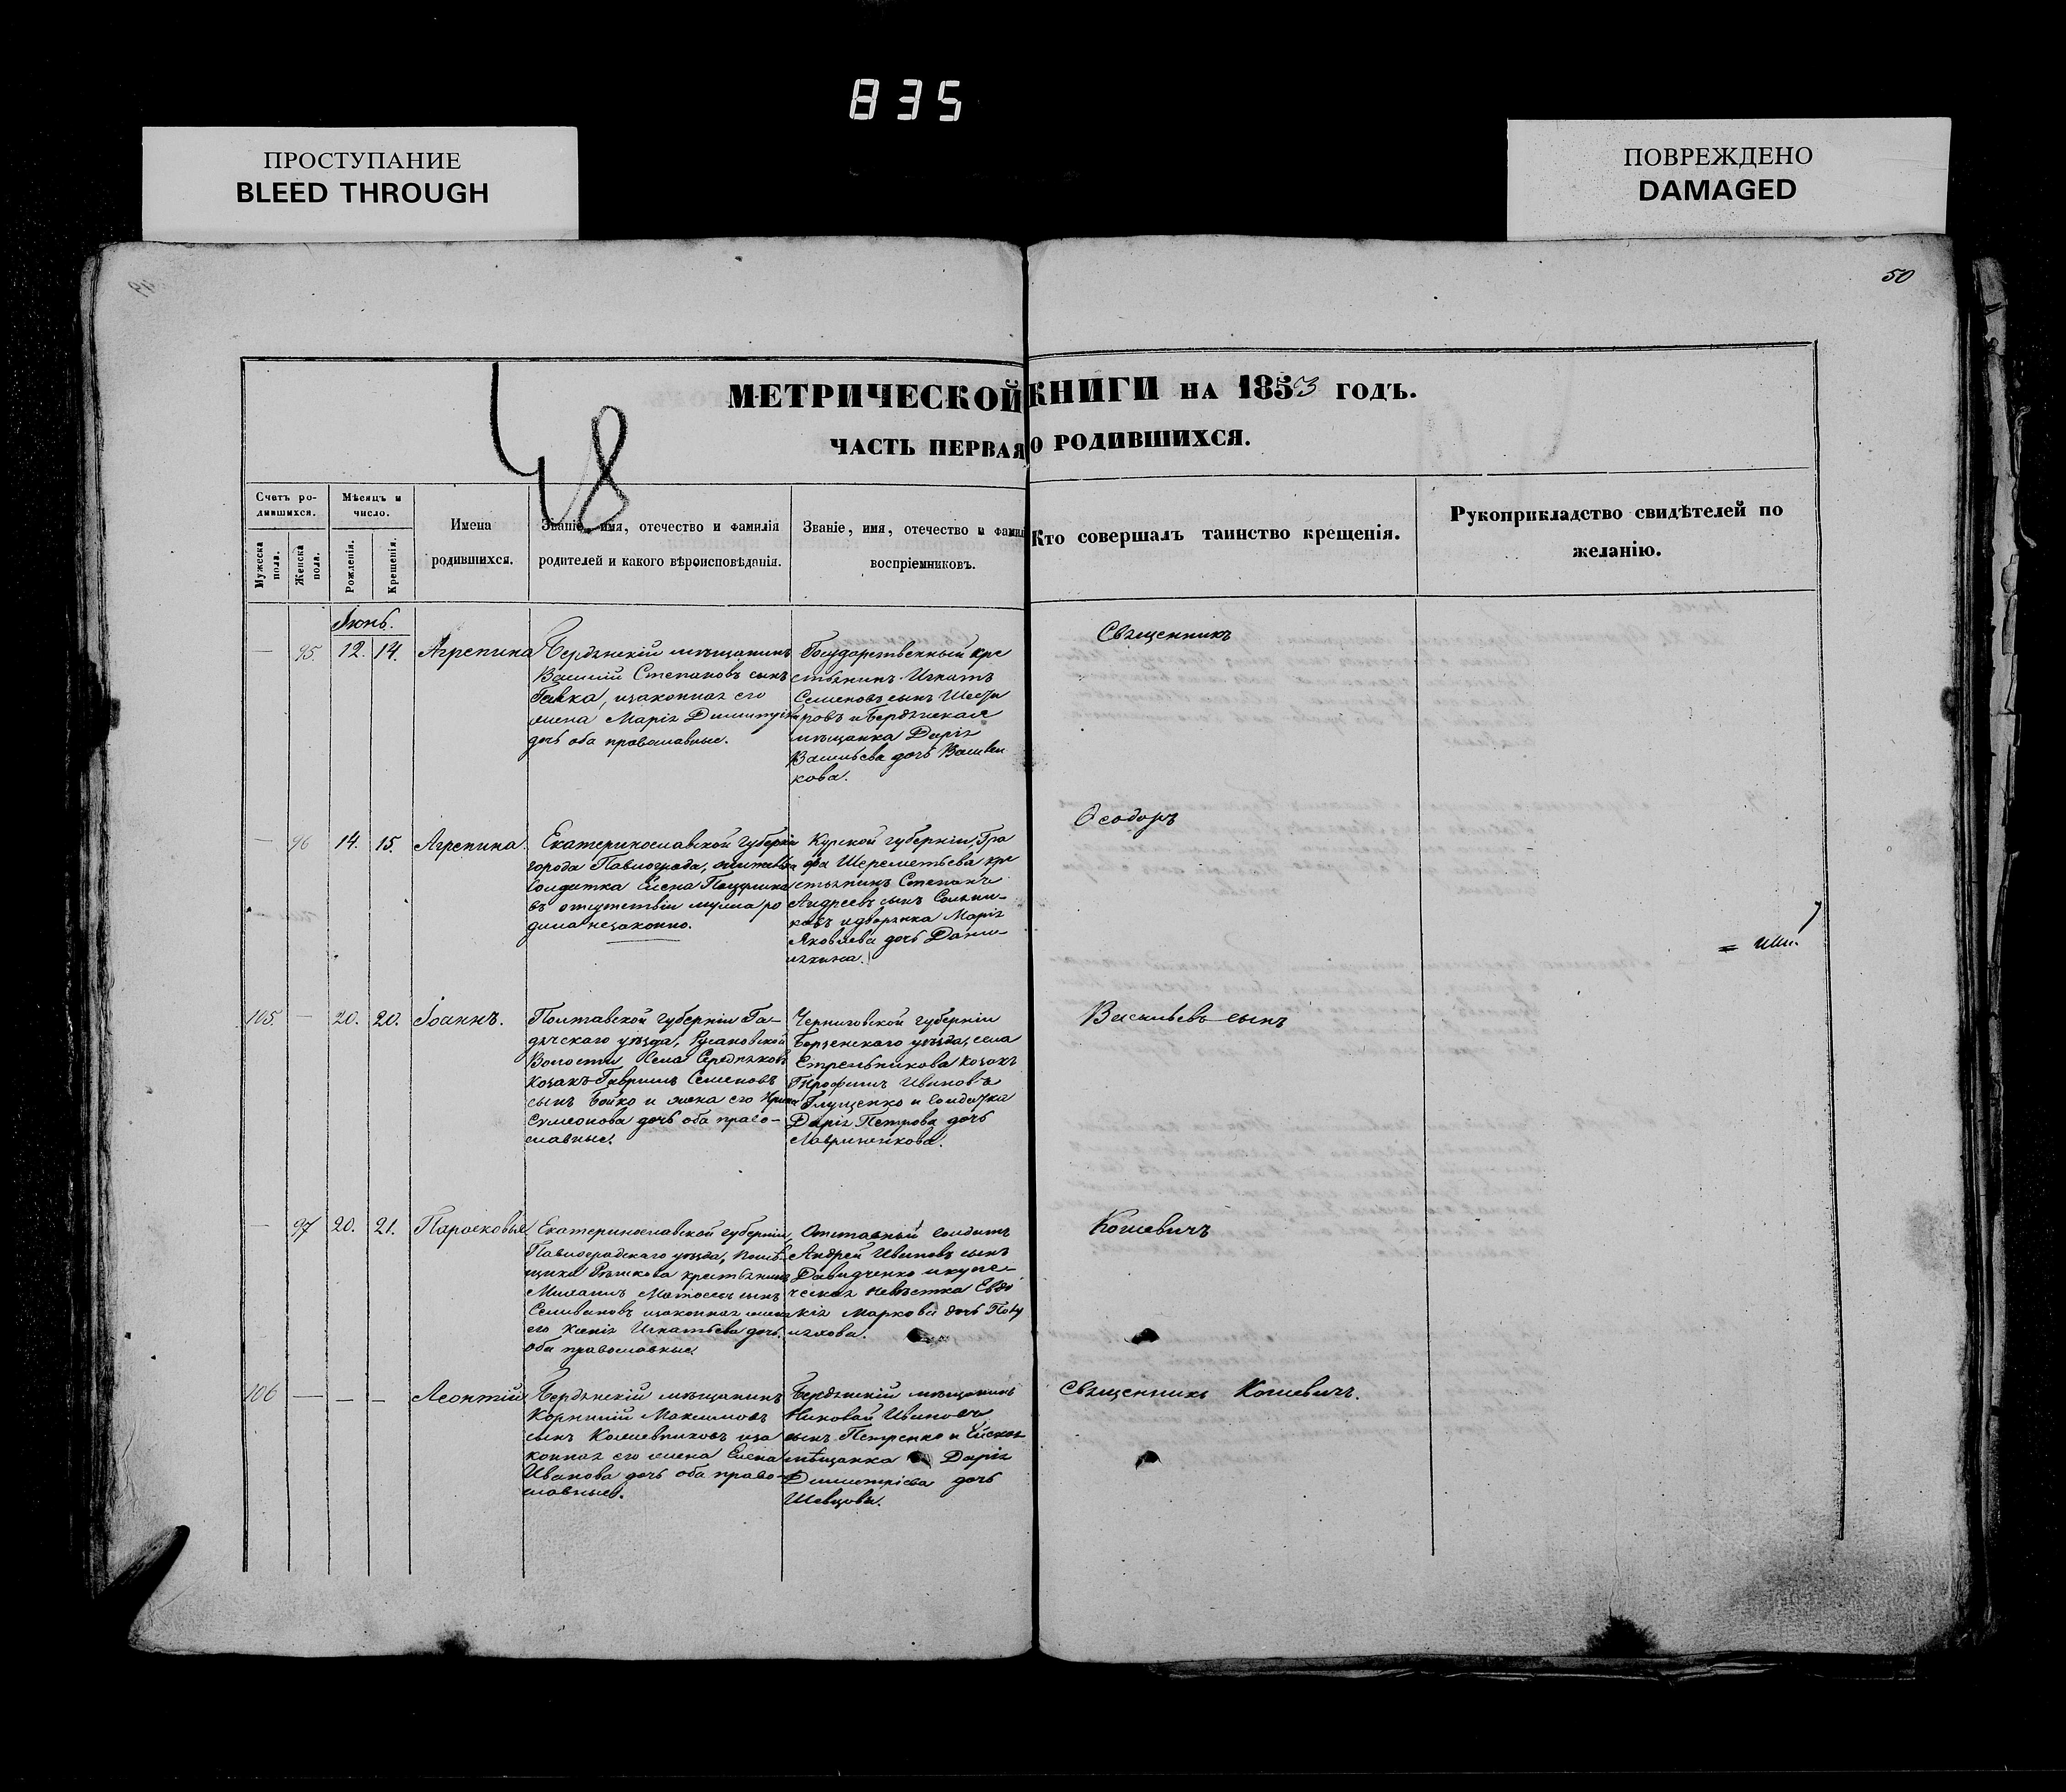 835
ПРОСТУПАНИЕ
BLEED THROUGH
ПОВРЕЖДЕНО
DAMAGED
50
48
МЕТРИЧЕСКОЙ КНИГИ НА 1853 ГОДЪ.
ЧАСТЬ ПЕРВАЯ О РОДИВШИХСЯ.
Счетъ ро-
дившихся.
Мужеска пола.
Женска пола.
Мѣсяцъ и
число.
Рожденія.
Крещенія.
Имена
родившихся.
Званіе, имя, отечество и фамилія
родителей и какого вѣроисповѣданія.
Званіе, имя, отечество и фамил
воспріемниковъ.
Кто совершалъ таинство крещенія.
Рукоприкладство свидѣтелей по
желанію.
Іюнь.
— 95. 12. 14. Агрепина
Бердянскій мѣщанинъ
Василій Степановъ сынъ
изаконная его
жена Марія
дочь оба православные.
Государственный кре
стьянинъ Игнатъ
Семеновъ сынъ
ровъ и Бердянская
мѣщанка Дарія
Васильева дочь
кова.
Священникъ
— 96 14. 15. Агрепина.
Екатеринославской губерніи
города Павлограда,
Солдатка Елена
въ отсутствіи мужа ро
дила незаконно.
Курской губерніи, Гра
фа Шереметьева кре
стьянинъ Степанъ
Андреевъ сынъ
ковъ идворянка Марія
Яковлева дочь
Ѳеодоръ
105. — 20. 20. Іоаннъ.
Полтавской губерніи Га-
дячского уѣзда,
Волости Села
Козакъ Гавріилъ Семеновъ
сынъ Бойко и жена его
Симеонова дочь оба право-
славные.
Черниговской губерніи
Борзенского уѣзда, села
козакъ
Трофимъ Ивановъ
Глущенко и солдатка
Дарія Петрова дочь
Васильевъ сынъ
— 97 20. 21. Парасковья.
Екатеринославской губерніи,
Павлоградскаго уѣзда, помѣ
щика крестьянинъ
Михаилъ сынъ
Селивановъ изаконная жена
его Ксенія Игнатьева дочь,
оба православные.
Отставный солдатъ
Андрей Ивановъ сынъ
Давидченко икупе-
ческая невѣстка Евдо
кія Маркова дочь
Кошевичъ
106 — — — Леонтій.
Бердянскій мѣщанинъ
Корнилій Максимовъ
сынъ иза
конная его жена Елена
Иванова дочь оба право-
славные.
Бердянскій мѣщанинъ
Николай Ивановъ
сынъ Петренко и
мѣщанка Дарія
Димитріева дочь
Шевцова.
Священникъ Кошевичъ.